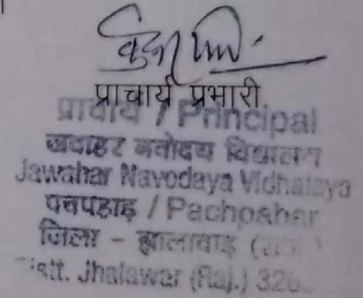 प्राचार्य प्रभारी
प्राचार्य / Principal
जवाहर नवोदय विद्यालय
Jawahar Navodaya Vidhalaya
पचपहाड़ / Pachpahar
जिला - झालावाड़ (राज.)
Distt. Jhalawar (Raj.) 326